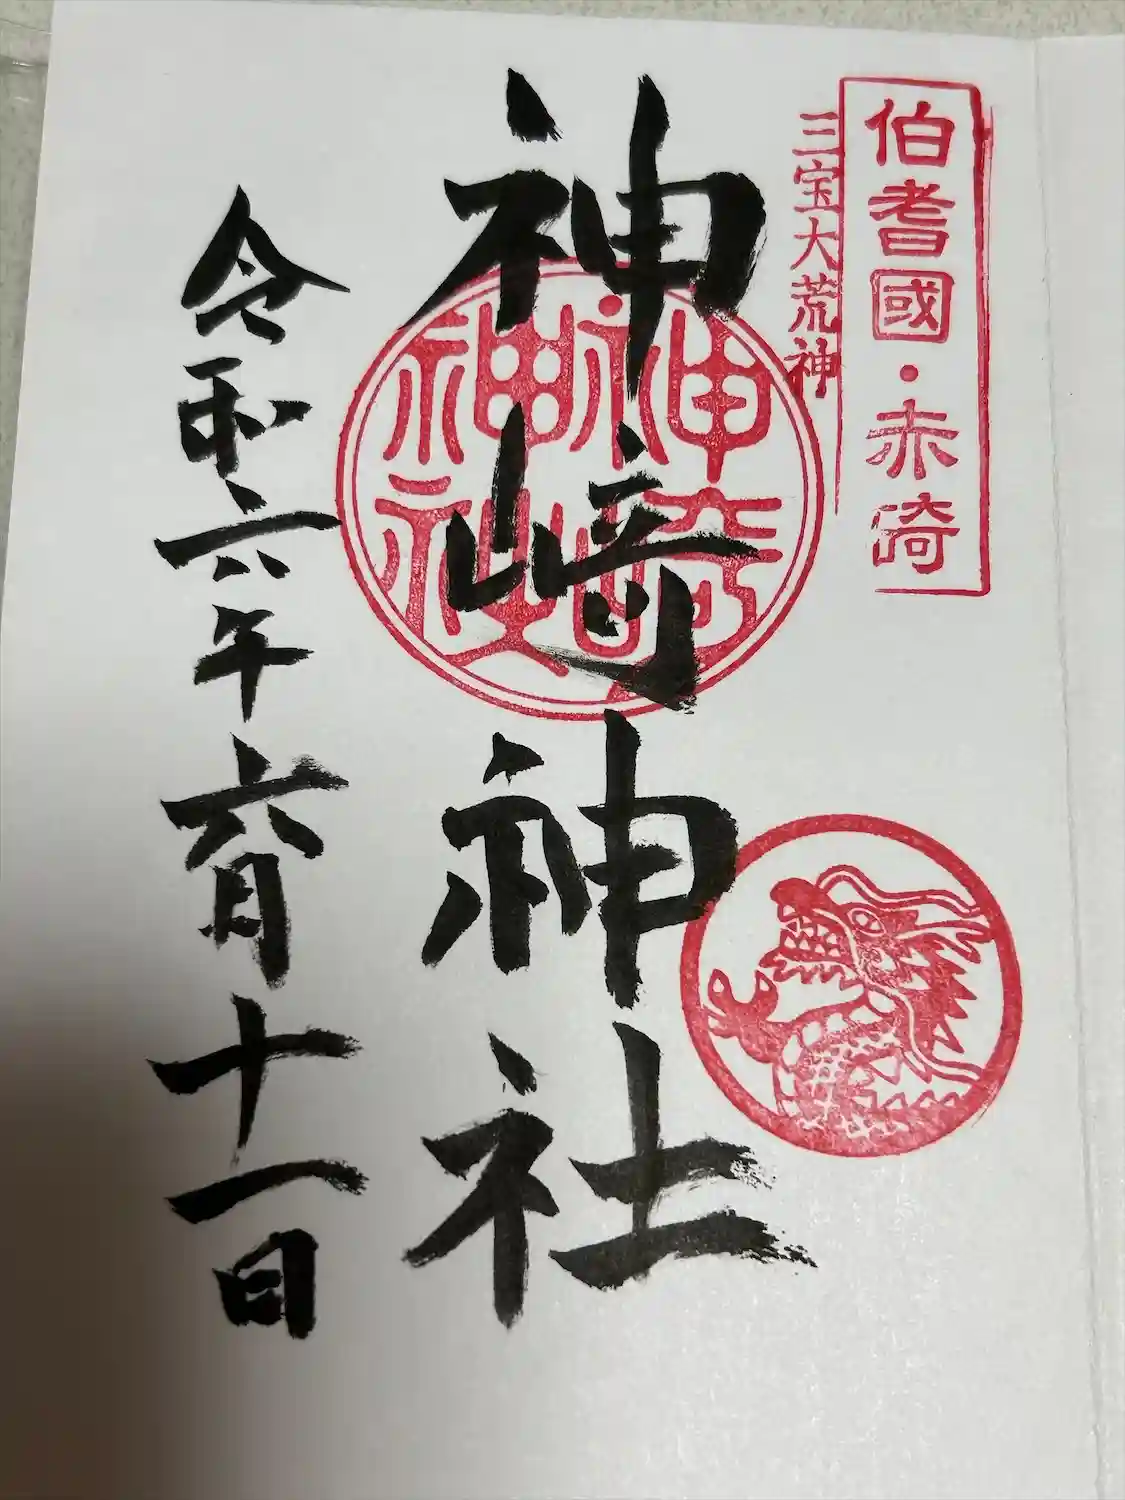 伯耆國・赤碕
三宝大荒神
神﨑神社
神﨑神社
令和六年六月十一日